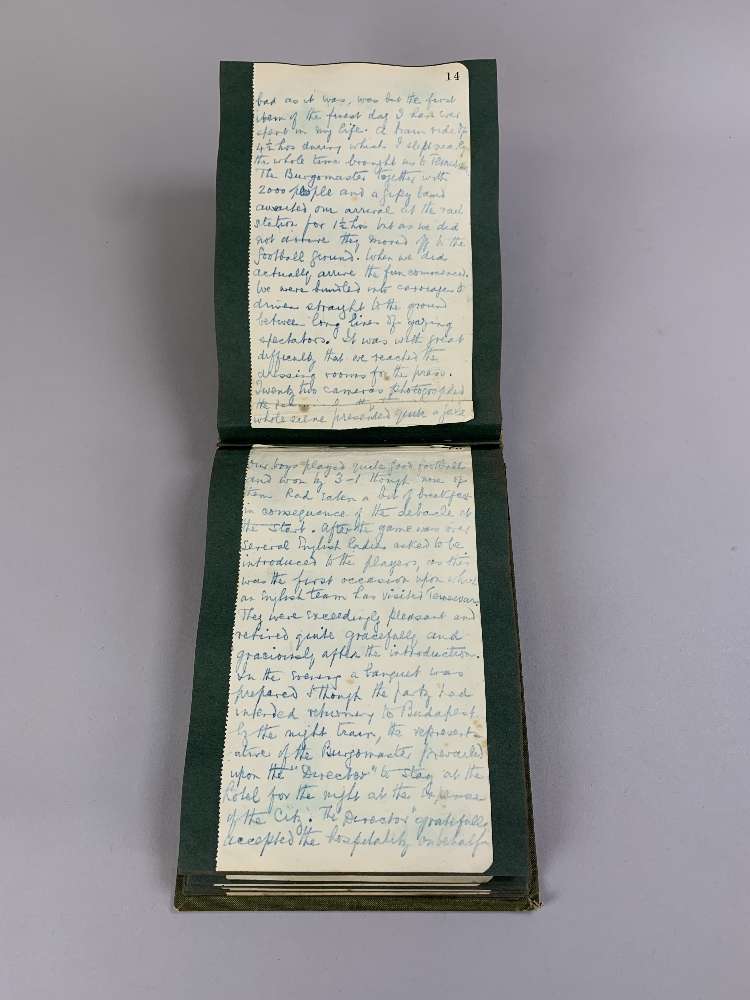 14
bad as it was, was but the first
item of the finest day I have ever
spent in my life. A train ride of
4½ hrs during which I slept nearly
the whole time brought us to
The Burgomaster together with
2000 people and a gipsy band
awaited our arrival at the rail
station for 1½ hrs but as we did
not arrive they moved off to the
football ground. When we did
actually arrive the fun commenced.
We were bundled into carriages &
driven straight to the ground
between long lines of gazing
spectators. It was with great
difficulty that we reached the
dressing rooms for the press.
Twenty two cameras photographed
the
whole scene presented quite a face
Our boys played quite good football
and won by 3-1 though none of
them had eaten a bit of breakfast
in consequence of the debacle at
the start. After the game was over
several English ladies asked to be
introduced to the players, as this
was the first occasion upon which
an English team has visited Temesvar.
They were exceedingly pleasant and
retired quite gracefully and
graciously after the introduction.
In the evening a banquet was
prepared & though the party had
intended returning to Budapest
by the night train, the represent-
ative of the Burgomaster prevailed
upon the "Director" to stay at the
Hotel for the night at the expense
of the City. The "Director" gratefully
accepted the hospitality on behalf